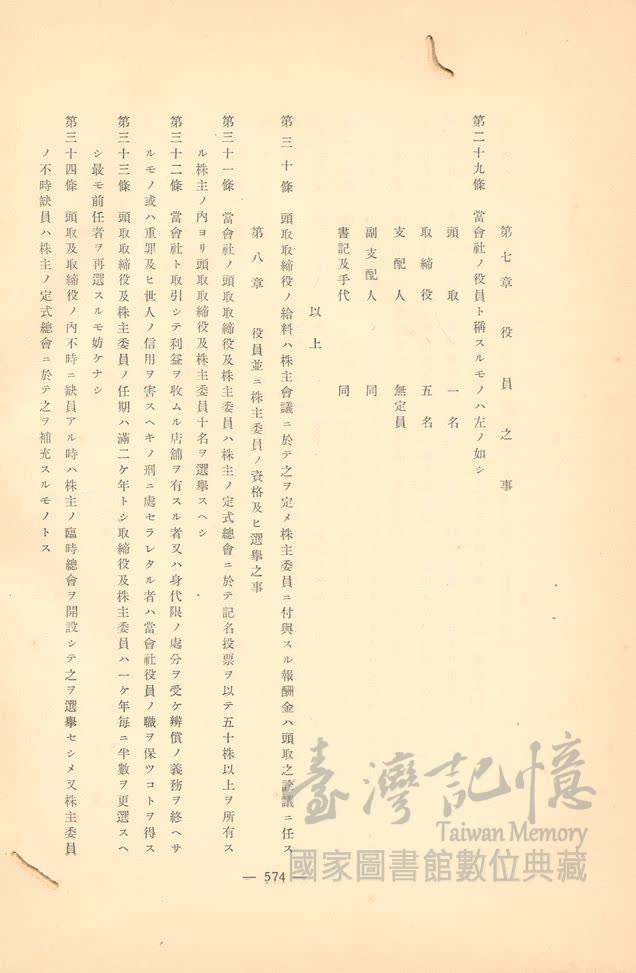 第七章　役員之事
第二十九條　當會社ノ役員ト稱スルモノハ左ノ如シ
頭取　一名
取締役　五名
支配人　無定員
副支配人　同
書記及手代　同
以上
第三十條　頭取取締役ノ給料ハ株主會議ニ於テ之ヲ定メ株主委員ニ付與スル報酬金ハ頭取之諮議ニ任ス
第八章　役員並ニ株主委員ノ資格及ヒ選擧之事
第三十一條　當會社ノ頭取取締役及株主委員ハ株主ノ定式總會ニ於テ記名投票ヲ以テ五十株以上ヲ所有ス
ル株主ノ內ヨリ頭取取締役及株主委員十名ヲ選擧スヘシ
第三十二條　當會社ト取引シテ利益ヲ收ムル店舖ヲ有スル者又ハ身代限ノ處分ヲ受ケ辨償ノ義務ヲ終ヘサ
ルモノ或ハ重罪及ヒ世人ノ信用ヲ害スヘキノ刑ニ處セラレタル者ハ當會社役員ノ職ヲ保ツコトヲ得ス
第三十三條　頭取取締役及株主委員ノ任期ハ滿二ケ年トシ取締役及株主委員ハ一ケ年每ニ半數ヲ更選スヘ
シ最モ前任者ヲ再選スルモ妨ケナシ
第三十四條　頭取及取締役ノ內不時ニ缺員アル時ハ株主ノ臨時總會ヲ開設シテ之ヲ選擧セシメ又株主委員
ノ不時缺員ハ株主ノ定式總會ニ於テ之ヲ補充スルモノトス
— 574 —
臺灣記憶
Taiwan Memory
國家圖書館數位典藏